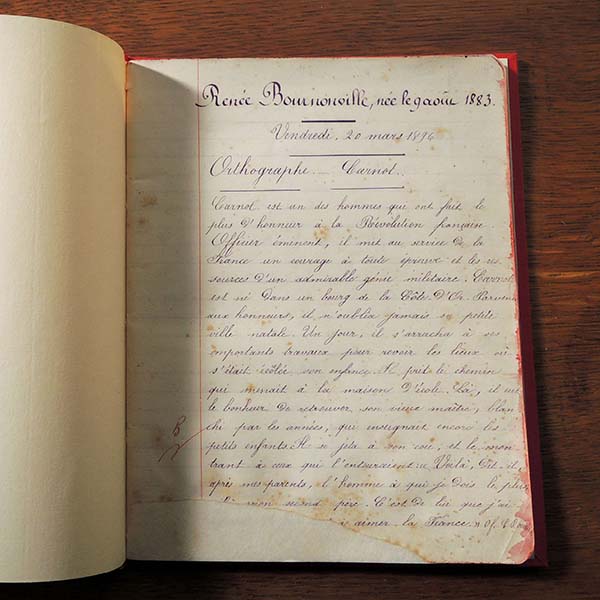 Renée Bournonville, née le 9 août 1883.
Vendredi, 20 mars 1896
Orthographe. — Carnot.
Carnot est un des hommes qui ont fait le
plus d'honneur à la Révolution française.
Officier éminent, il met au service de la
France un courage à toute épreuve et les res
sources d'un admirable génie militaire. Carnot
est né dans un bourg de la Côte d'Or. Parvenu
aux honneurs, il n'oublia jamais sa petite
ville natale. Un jour, il s'arracha à ses
importants travaux pour revoir les lieux où
s'était écoulée son enfance. Il prit le chemin
qui menait à la maison d'école. Là, il eut
le bonheur de retrouver son vieux maître, blan
chi par les années, qui enseignait encore les
petits enfants. Il se jeta à son cou, et le mon
trant à ceux qui l'entouraient: « Voilà, dit-il,
après mes parents, l'homme à qui je dois le plus
mon second père. C'est de lui que j'ai
aimer la France. »
B